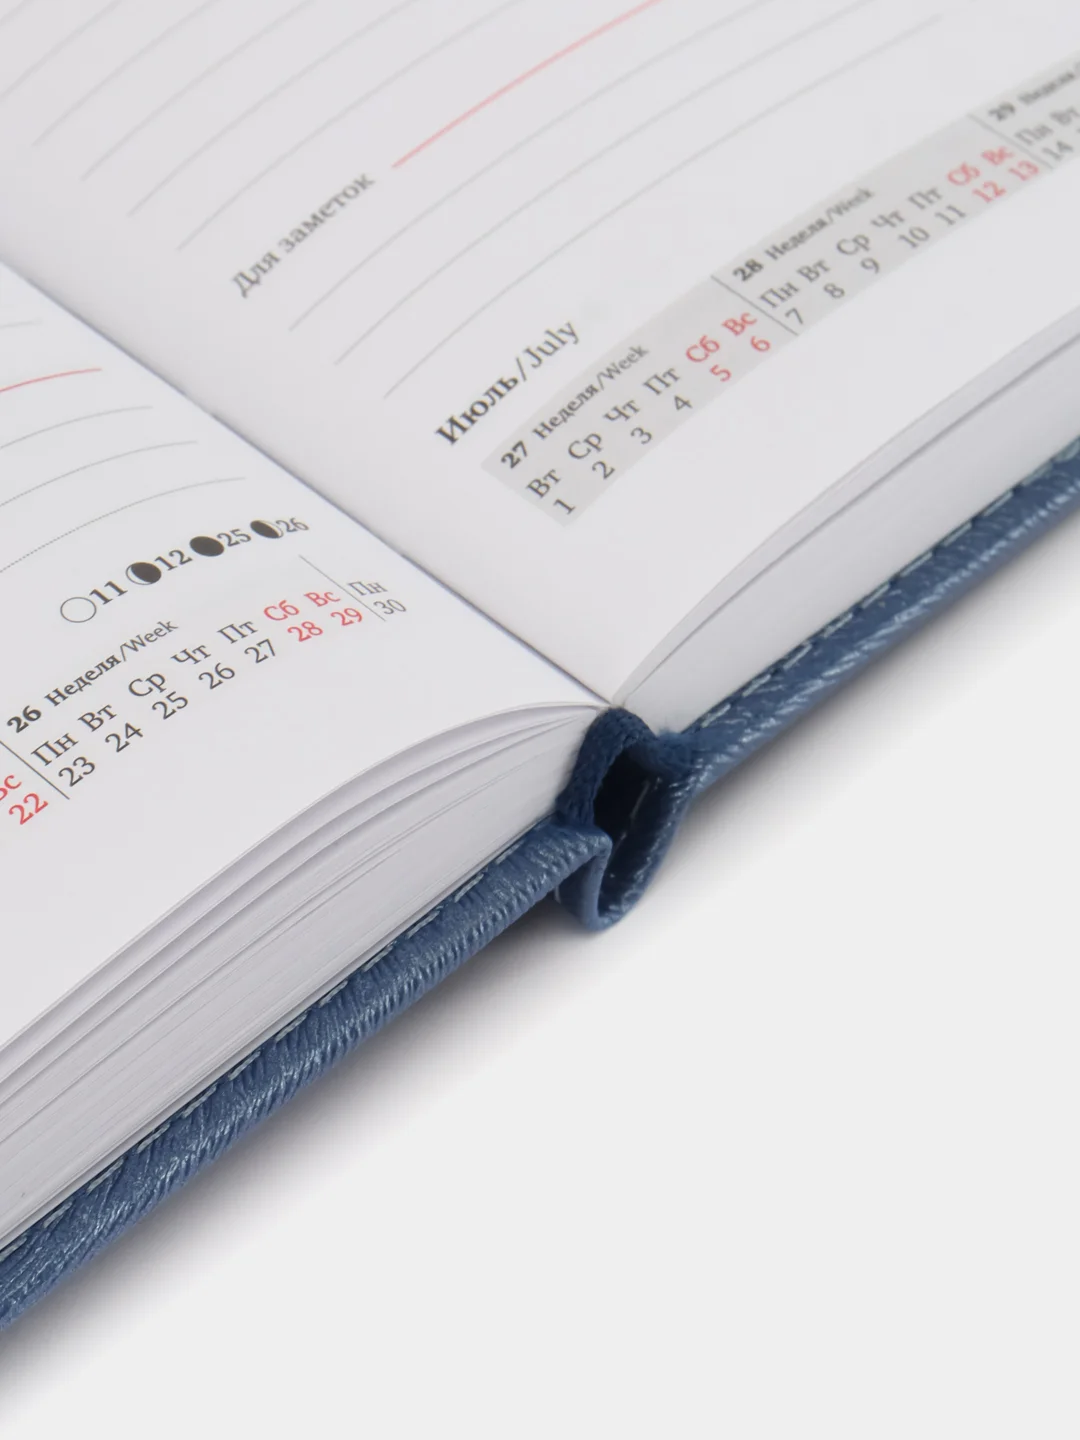 11 12 25 26
26 Неделя/Week
Вс Пн Вт Ср Чт Пт Сб Вс Пн
22 23 24 25 26 27 28 29 30
Для заметок
Июль/July
27 Неделя/Week 28 Неделя/Week 29 Неделя
Вт Ср Чт Пт Сб Вс Пн Вт Ср Чт Пт Сб Вс Пн Вт
1 2 3 4 5 6 7 8 9 10 11 12 13 14